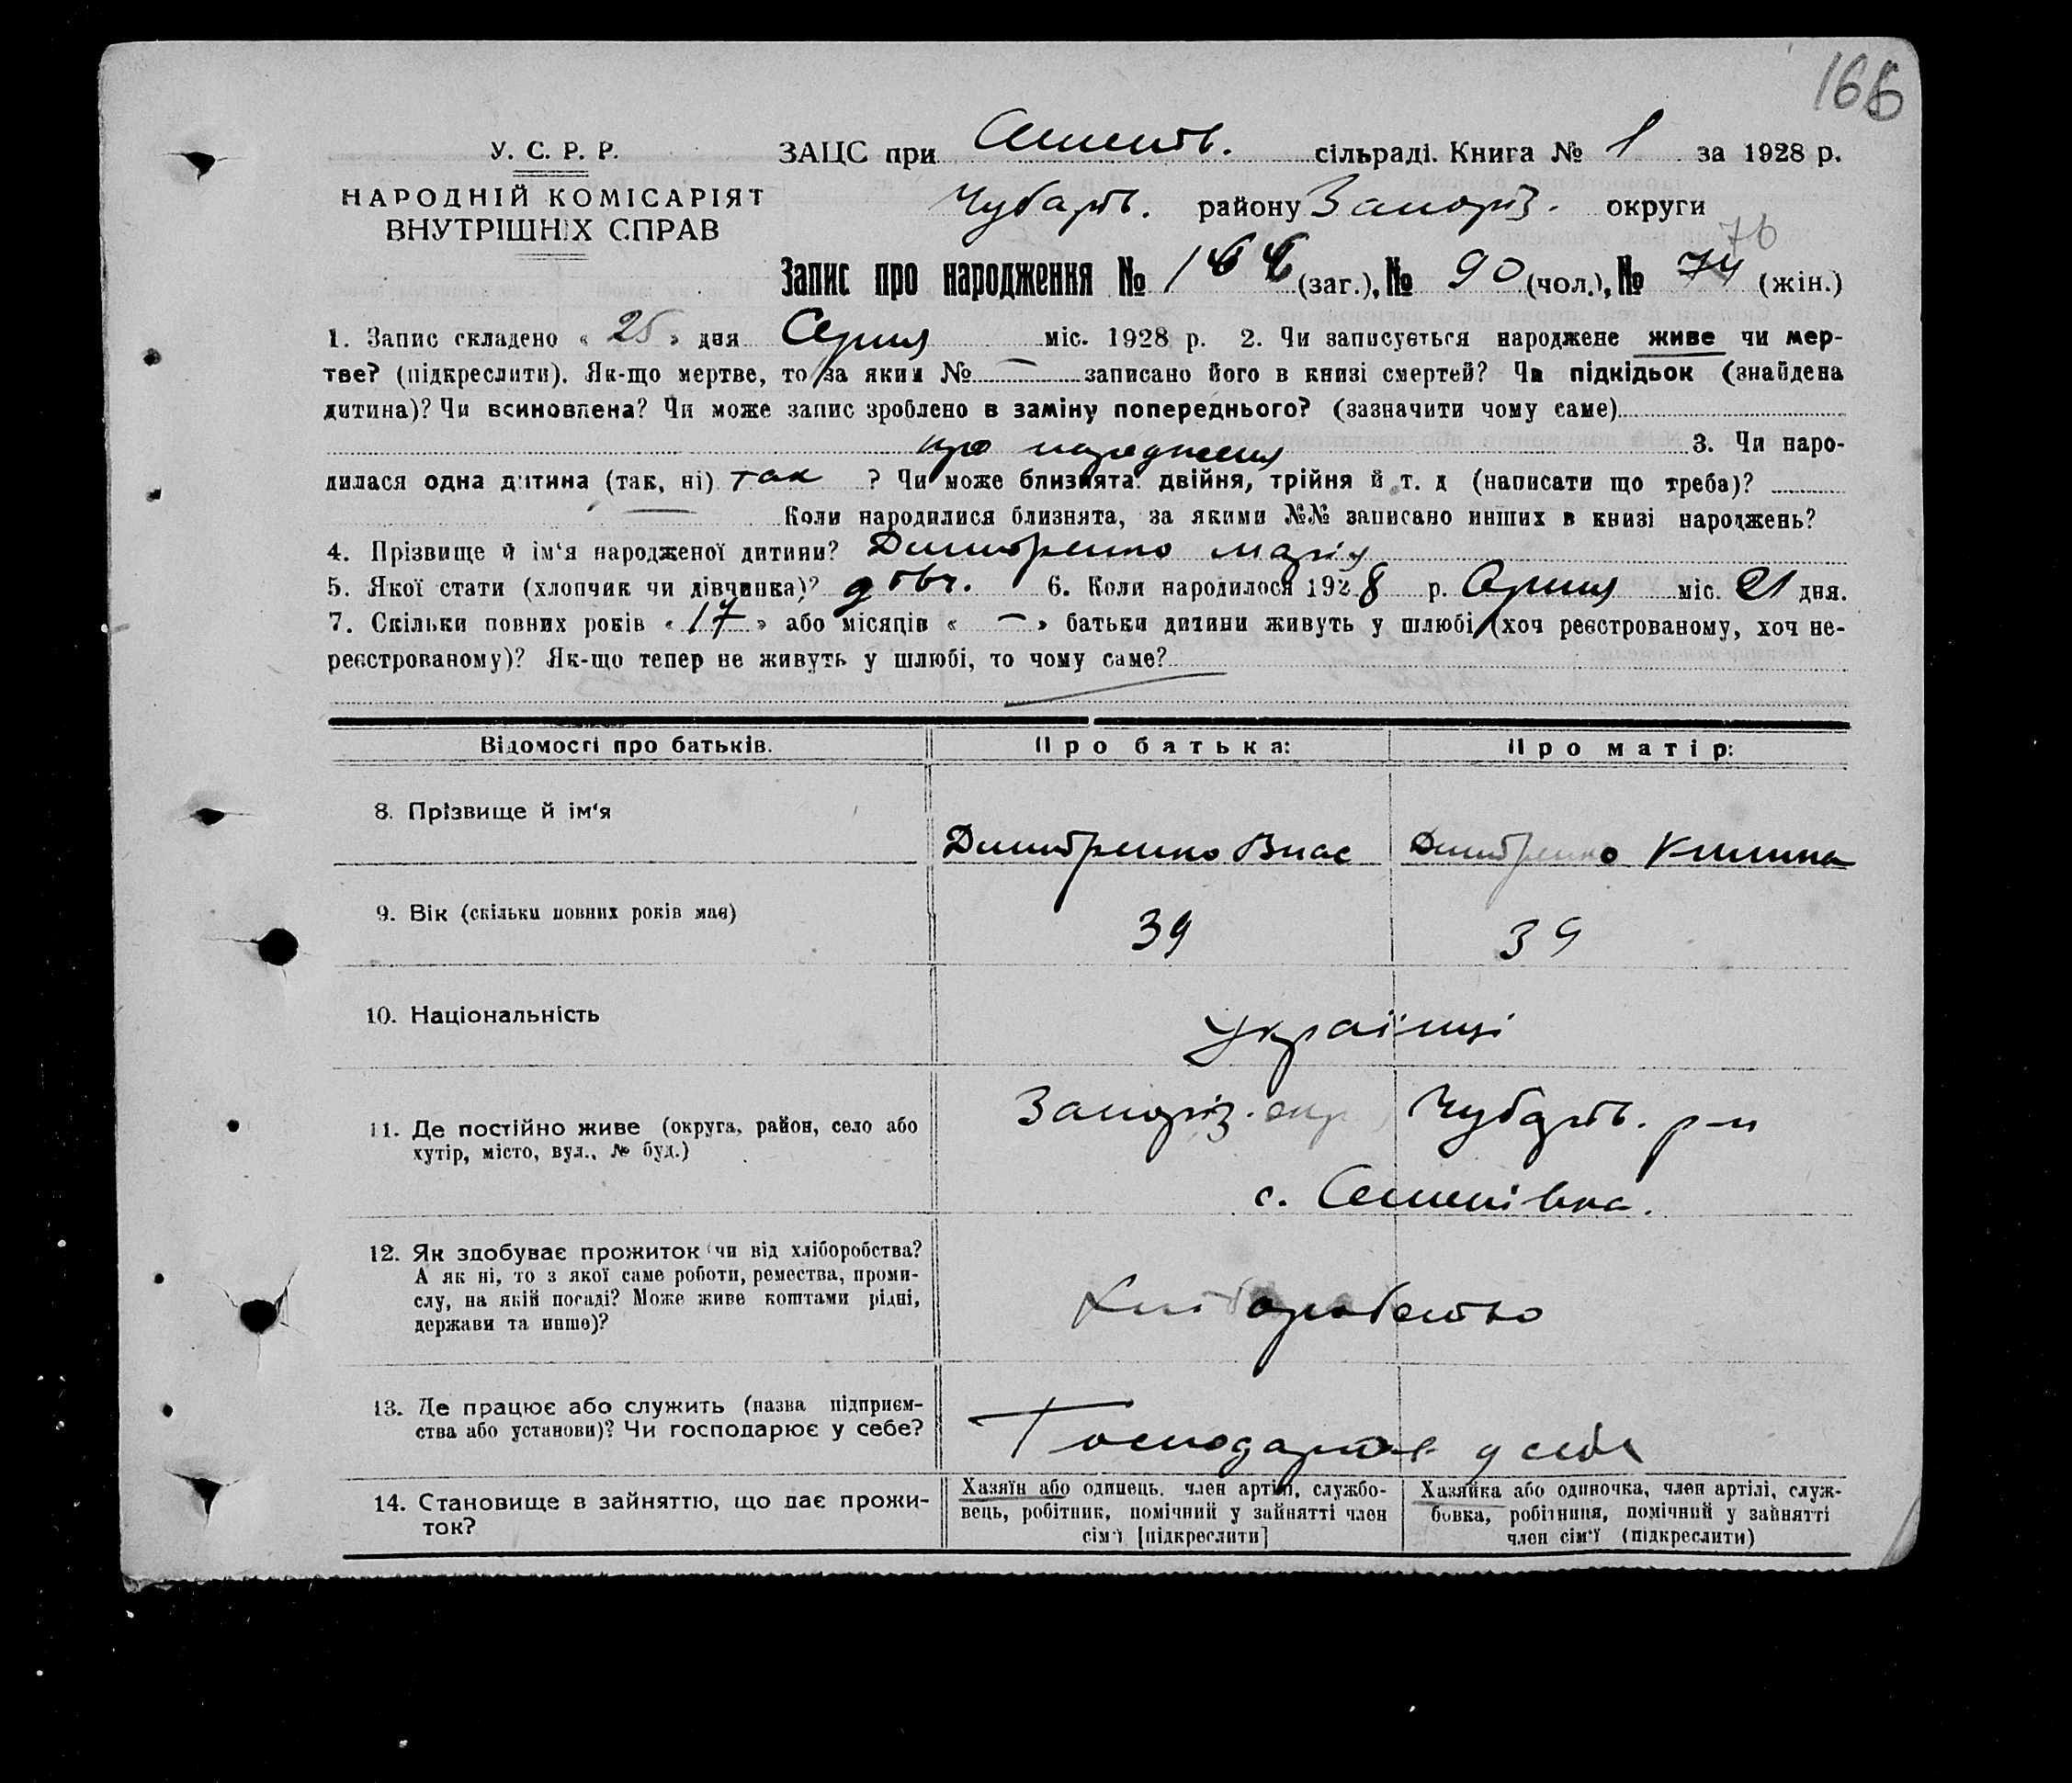 166
У. С. Р. Р.
НАРОДНІЙ КОМІСАРІЯТ
ВНУТРІШНІХ СПРАВ
ЗАЦС при Семенів. сільраді. Книга № 1 за 1928 р.
Чубарів. району Запоріз. округи
76
Запис про народження № 166 (заг.), № 90 (чол.), № 74 (жін.)
1. Запис складено « 25 » дня Серпня міс. 1928 р. 2. Чи записується народжене живе чи мер-
тве? (підкреслити). Як-що мертве, то за яким № — записано його в книзі смертей? Чи підкідьок (знайдена
дитина)? Чи всиновлена? Чи може запис зроблено в заміну попереднього? (зазначити чому саме)
про народження 3. Чи наро-
дилася одна дитина (так, ні) так ? Чи може близнята: двійня, трійня й т. д (написати що треба)?
Коли народилися близнята, за якими №№ записано инших в книзі народжень?
4. Прізвище й ім‘я народженої дитини? Дмитренко Марія
5. Якої стати (хлопчик чи дівчинка)? дівч. 6. Коли народилося 1928 р. Серпня міс. 21 дня.
7. Скільки повних років « 17 » або місяців « — » батьки дитини живуть у шлюбі (хоч реєстрованому, хоч не-
реєстрованому)? Як-що тепер не живуть у шлюбі, то чому саме?
Відомості про батьків. Про батька: Про матір:
8. Прізвище й ім‘я Дмитренко Влас Дмитренко Килина
9. Вік (скільки повних років має) 39 39
10. Національність українці
11. Де постійно живе (округа, район, село або
хутір, місто, вул., № буд.)
Запоріз. окр., Чубарів. р-н
с. Семенівка.
12. Як здобуває прожиток (чи від хліборобства?
А як ні, то з якої саме роботи, ремества, проми-
слу, на якій посаді? Може живе коштами рідні,
держави та инше)?
Хліборобство
13. Де працює або служить (назва підприєм-
ства або установи)? Чи господарює у себе?
Господарює у себе
14. Становище в зайняттю, що дає прожи-
ток?
Хазяїн або одинець, член артілі, службо-
вець, робітник, помічний у зайнятті член
сім‘ї [підкреслити]
Хазяйка або одиночка, член артілі, служ-
бовка, робітниця, помічний у зайнятті
член сім‘ї (підкреслити)